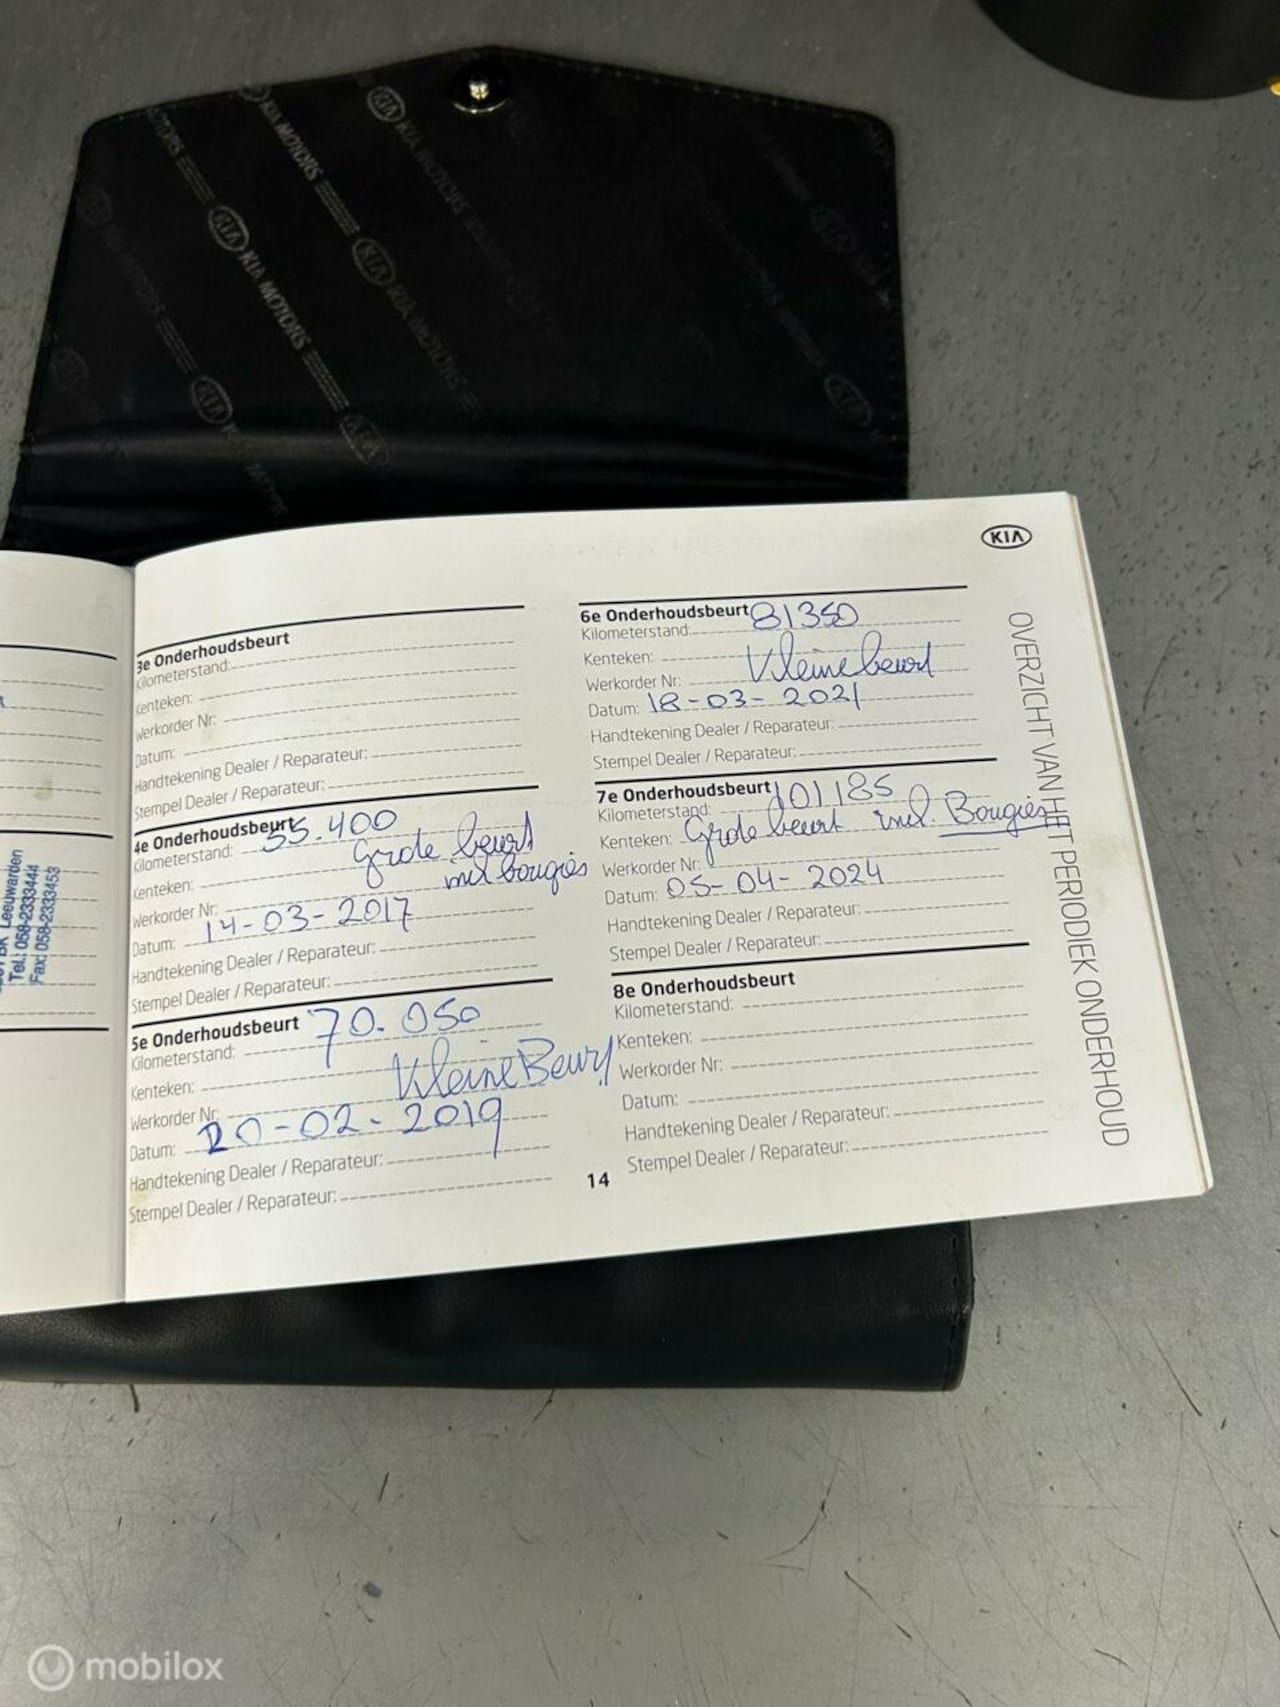 KIA MOTORS
KIA MOTORS
KIA MOTORS
KIA MOTORS
KIA
Leeuwarden
Tel.: 058-2333444
Fax: 058-2333453
3e Onderhoudsbeurt
Kilometerstand:
Kenteken:
Werkorder Nr:
Datum:
Handtekening Dealer / Reparateur:
Stempel Dealer / Reparateur:
4e Onderhoudsbeurt
Kilometerstand: 55.400
Kenteken: Grote beurt
incl bougiès
Werkorder Nr:
Datum: 14-03-2017
Handtekening Dealer / Reparateur:
Stempel Dealer / Reparateur:
5e Onderhoudsbeurt 70.050
Kilometerstand:
Kenteken: Kleine Beurt
Werkorder Nr:
Datum: 20-02-2019
Handtekening Dealer / Reparateur:
Stempel Dealer / Reparateur:
6e Onderhoudsbeurt 81350
Kilometerstand:
Kenteken: Kleine beurt
Werkorder Nr:
Datum: 18-03-2021
Handtekening Dealer / Reparateur:
Stempel Dealer / Reparateur:
7e Onderhoudsbeurt 101185
Kilometerstand:
Kenteken: Grote beurt incl. Bougiès
Werkorder Nr:
Datum: 05-04-2024
Handtekening Dealer / Reparateur:
Stempel Dealer / Reparateur:
8e Onderhoudsbeurt
Kilometerstand:
Kenteken:
Werkorder Nr:
Datum:
Handtekening Dealer / Reparateur:
Stempel Dealer / Reparateur:
14
OVERZICHT VAN HET PERIODIEK ONDERHOUD
mobilox